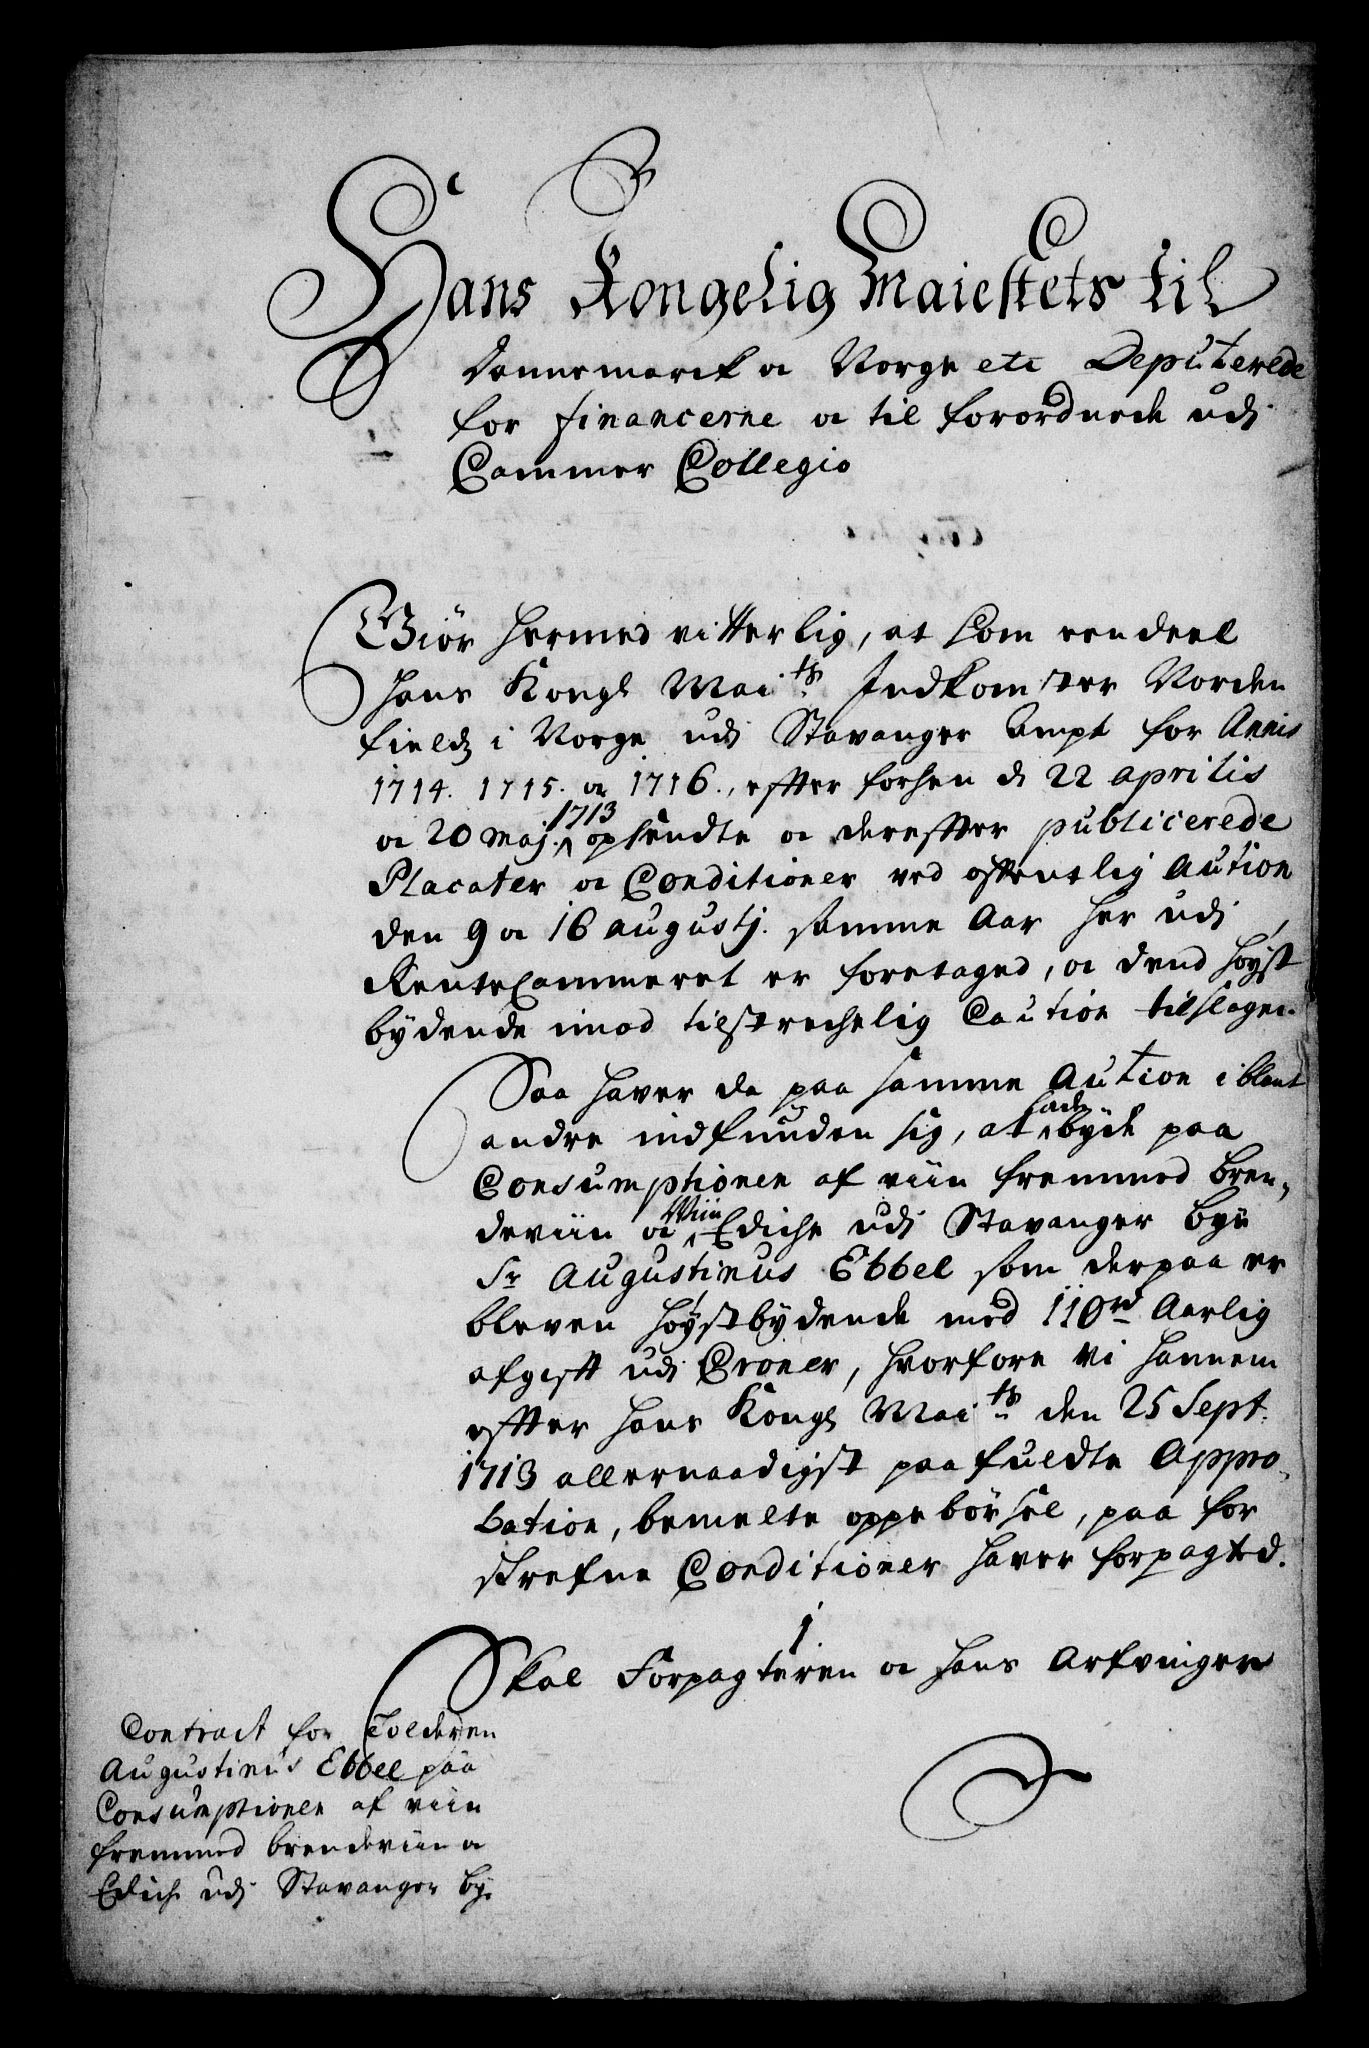 Hans Kongelig Maiestets til
Dannemarck og Norge etc Deputerede
for financerne og til forordnede udj
Cammer Collegio
Giör hermed vitterlig, at som eendeel
Hans Kongl Mai.ts Indkomster Norden
fields i Norge udj Stavanger Ampt for Annis
1714. 1715. og 1716., efter forhen d 22 aprilis
og 20 Maj. 1713 opsendte og derefter publicerede
Placater og Conditioner ved offentlig Aution
den 9 og 16 augustj. samme Aar her udj
RenteCammeret er foretaged, og dend høyst
bydende imod tilstrechelig Caution tilslagen.
Saa haver da paa samme Aution iblant
andre indfunden sig, at lade byde paa
Consumptionen af viin fremmed Bren,
deviin og Viin Ediche udj Stavanger bye
Sr Augustinus Ebbel som derpaa er
bleven høystbydende med 110 rd Aarlig
afgift udj Croner, hvorfore vi hannem
efter Hans Kongl Mai.ts den 25 Sept.
1713 allernaadigst paafuldte Appro,
bation, bemelte oppebörsel, paa for
skrefne Conditioner haver forpagted.
1
Skal Forpagteren og hans Arfvinger
Contract for Tolderen
Augustinus Ebbel paa
Consumptionen af viin
fremmed brendeviin og
Edich udj Stavanger by.